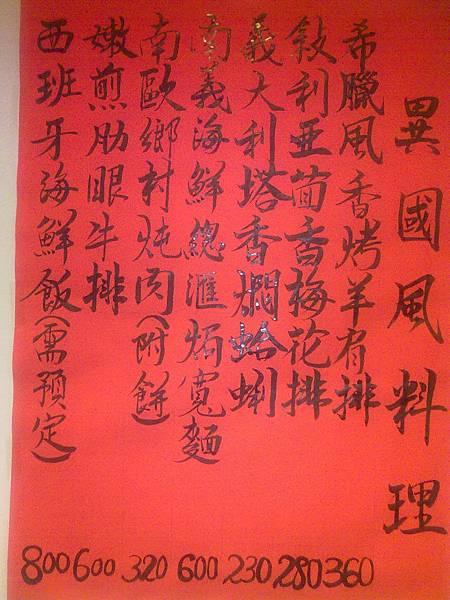 異國風料理
希臘風香烤羊肩排 360
敘利亞茴香梅花排 280
義大利塔香燜蛤蜊 230
南義海鮮總滙焗寬麵 600
南歐鄉村炖肉(附餅) 320
嫩煎肋眼牛排 600
西班牙海鮮飯(需預定) 800